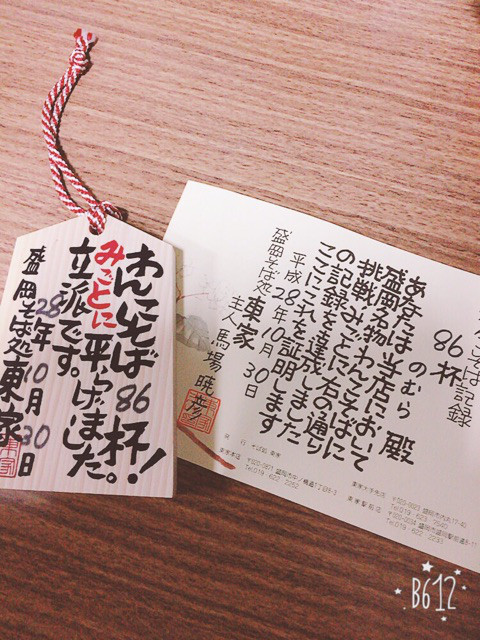 わんこそば86杯!
みごとに平らげました。
立派です。
28年10月30日
盛岡そば処東家
そば記録
86杯
のむら殿
あなたは当店において
盛岡名物わんこそばに
挑戦みごとに右の通り
の記録を達成しました
ここにこれを証明します
平成28年10月30日
盛岡そば処東家
主人馬場暁彦
B612